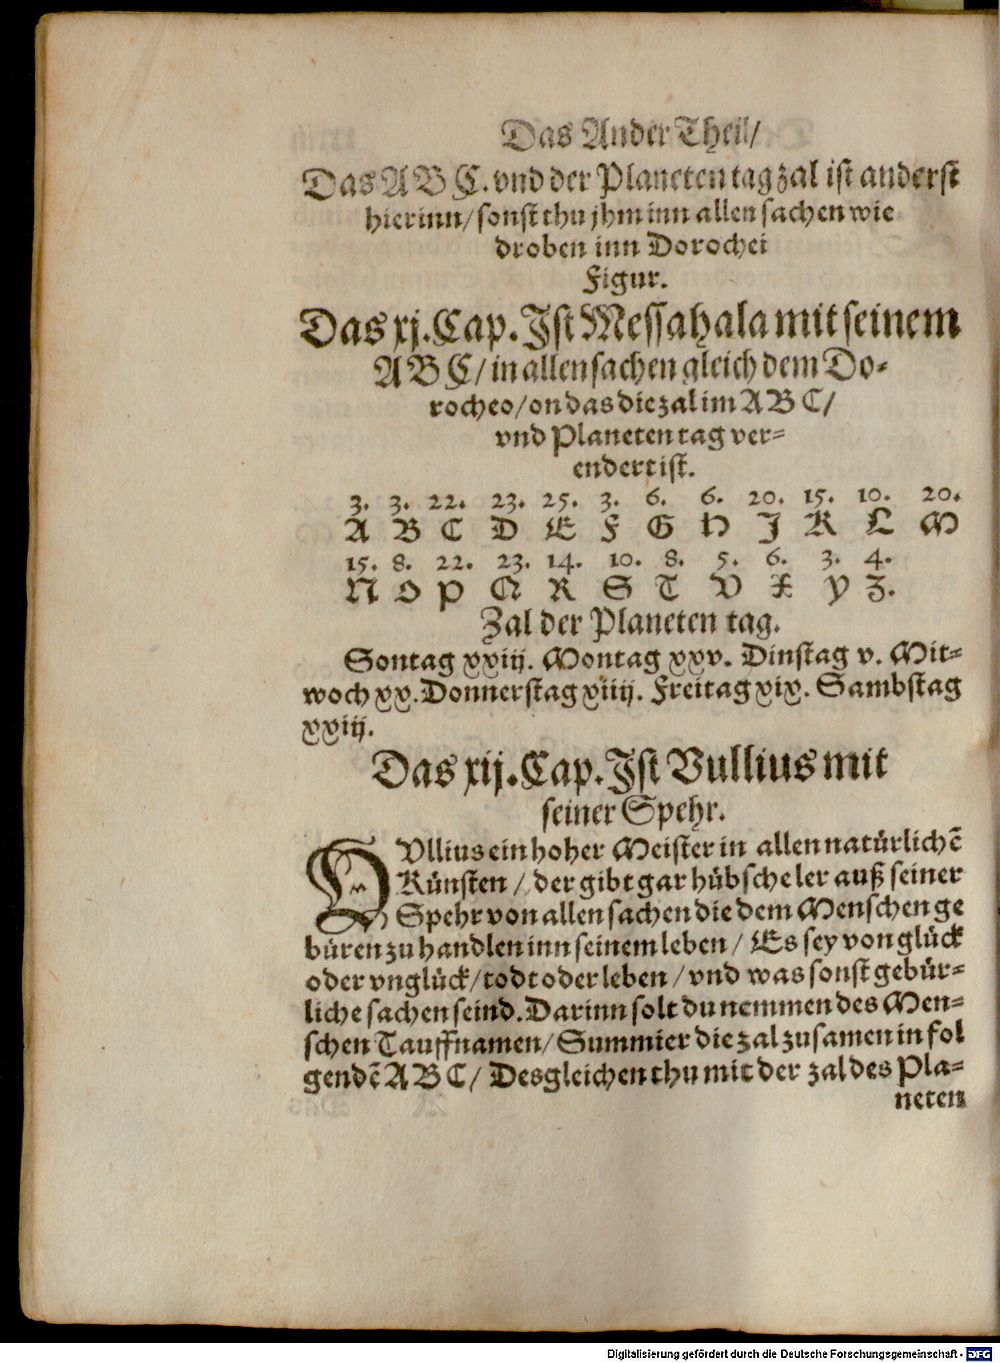 Das Ander Theil/
Das A B C. vnd der Planeten tag zal ist anderst
hierinn/ sonst thu jhm inn allen sachen wie
droben inn Dorochei
Figur.
Das xj. Cap. Ist Messahala mit seinem
A B C/ in allen sachen gleich dem Do-
rocheo/ on das die zal im A B C/
vnd Planeten tag ver-
endert ist.
3. 3. 22. 23. 25. 3. 6. 6. 20. 15. 10. 20.
A B C D E F G H J K L M
15. 8. 22. 23. 14. 10. 8. 5. 6. 3. 4.
N O P Q R S T V X Y Z.
Zal der Planeten tag.
Sontag xxiij. Montag xxv. Dinstag v. Mit-
woch xx. Donnerstag xiiij. Freitag xix. Sambstag
xxiij.
Das xij. Cap. Ist Vullius mit
seiner Spehr.
VVllius ein hoher Meister in allen natürlichẽ
Künsten/ der gibt gar hübsche ler auß seiner
Spehr von allen sachen die dem Menschen ge
büren zu handlen inn seinem leben/ Es sey von glück
oder vnglück/ todt oder leben/ vnd was sonst gebür-
liche sachen seind. Darinn solt du nemmen des Men-
schen Tauffnamen/ Summier die zal zusamen in fol
gendẽ A B C/ Desgleichen thu mit der zal des Pla-
neten
Digitalisierung gefördert durch die Deutsche Forschungsgemeinschaft - DFG